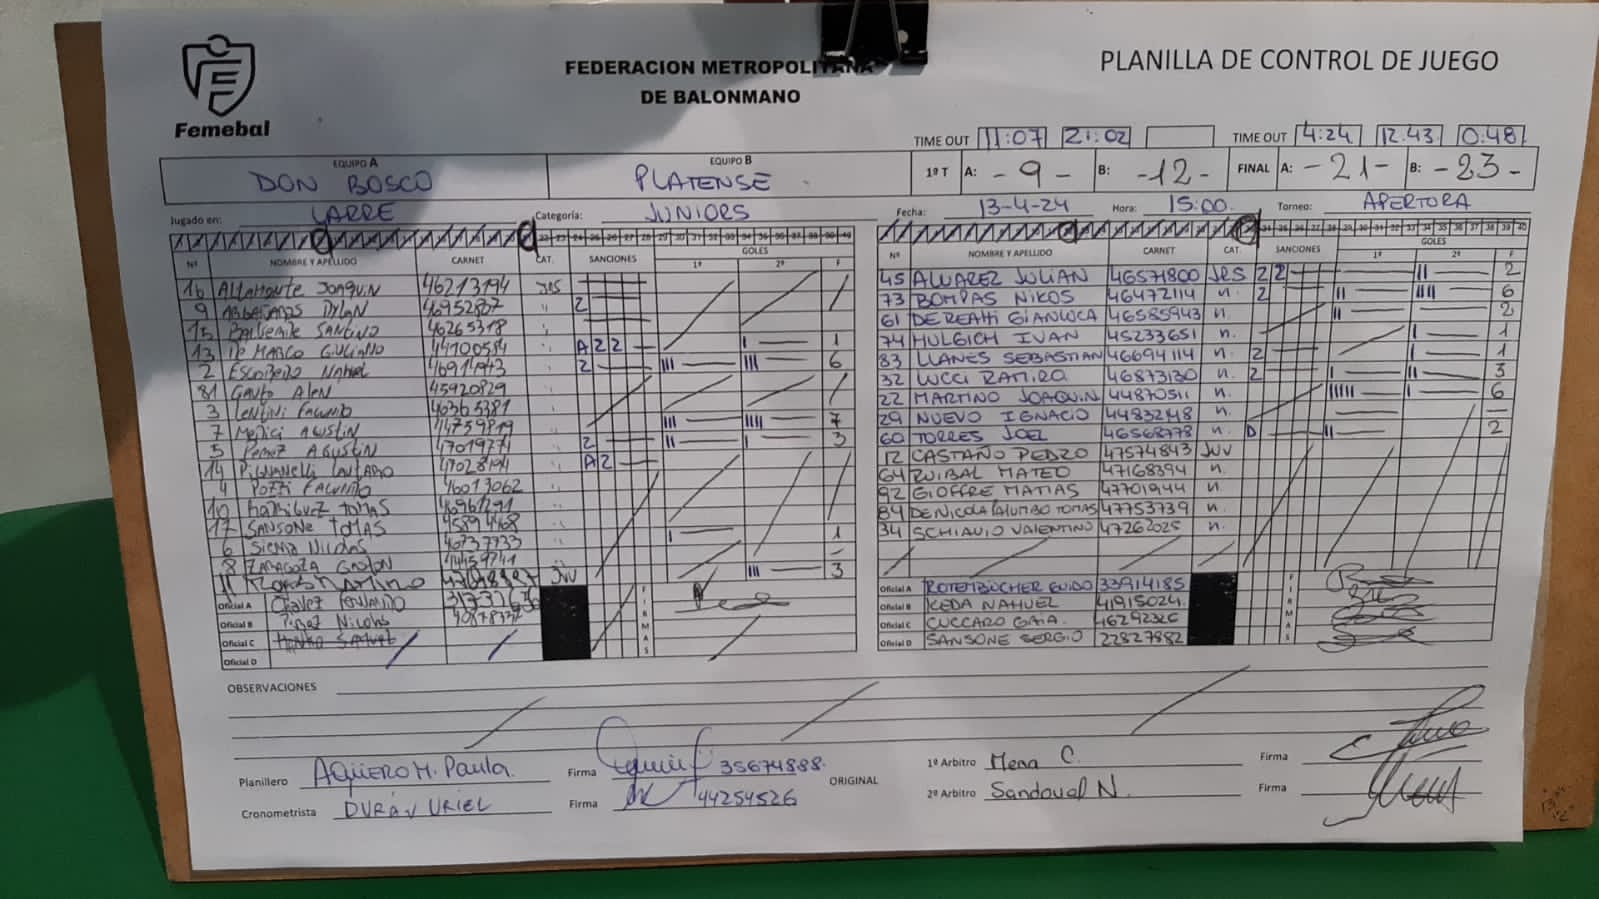 Femebal
FEDERACION METROPOLITANA
DE BALONMANO
PLANILLA DE CONTROL DE JUEGO
TIME OUT 11:07 21:02 TIME OUT 4:24 12:43 0:48
EQUIPO A DON BOSCO EQUIPO B PLATENSE 1º T A: - 9 - B: - 12 - FINAL A: - 21 - B: - 23 -
Jugado en: LARRE Categoría: JUNIORS Fecha: 13-4-24 Hora: 15:00 Torneo: APERTURA
Nº NOMBRE Y APELLIDO CARNET CAT. SANCIONES GOLES 1º 2º F
16 JOAQUIN 46213194 JRS
9 DYLAN 46952807 2
15 SANTINO 46265318
13 DE MARCO GIULIANO A 2 2 I 1
2 ESCOBEDO 2 III III 6
31 Gauto Alen 45920829
3 Lentini Facundo 46365381
7 Medici Agustin 44759819 III IIII 7
5 Perez Agustin 47019274 2 II I 3
14 Pignanelli Lautaro A 2
4 Pozzi Facundo 46013062
10 Rodriguez Tomas
17 SANSONE TOMAS I 1
6 Sierra Nicolas
8 ZARAGOZA GASTON III 3
11 JUV
Oficial A Chavez Fernando
Oficial B Nicolas
Oficial C
Oficial D
FIRMAS
Nº NOMBRE Y APELLIDO CARNET CAT. SANCIONES GOLES 1º 2º F
45 ALVAREZ JULIAN 46571800 JRS 2 2 II 2
73 BOMPAS NIKOS 46472114 n. 2 II IIII 6
61 GIANLUCA 46585943 n. II 2
74 IVAN 45233651 n. I 1
83 LLANES SEBASTIAN 46694114 n. 2 I 1
32 LUCCI RAMIRO 46873130 n. 2 I II 3
22 MARTINO JOAQUIN 44870511 n. IIIII I 6
29 NUEVO IGNACIO n. —
60 TORRES JOEL 46568778 n. D II 2
12 CASTAÑO PEDRO 47574843 JUV
64 RUIBAL MATEO 47168394 n.
92 GIOFFRE MATIAS 47701944 n.
84 DE NICOLA PALUMBO TOMAS 47753739 n.
34 SCHIAVIO VALENTINO 47262025 n.
Oficial A ROTEMBUCHER GUIDO 33914185
Oficial B IKEDA NAHUEL 41915024
Oficial C CUCCARO GAIA. 46292326
Oficial D SANSONE SERGIO 22827882
FIRMAS
OBSERVACIONES
Planillero AGÜERO M. Paula. Firma 35674888
Cronometrista DURÁN URIEL Firma 44254526
ORIGINAL
1º Arbitro Mena C. Firma
2º Arbitro Sandoval N. Firma